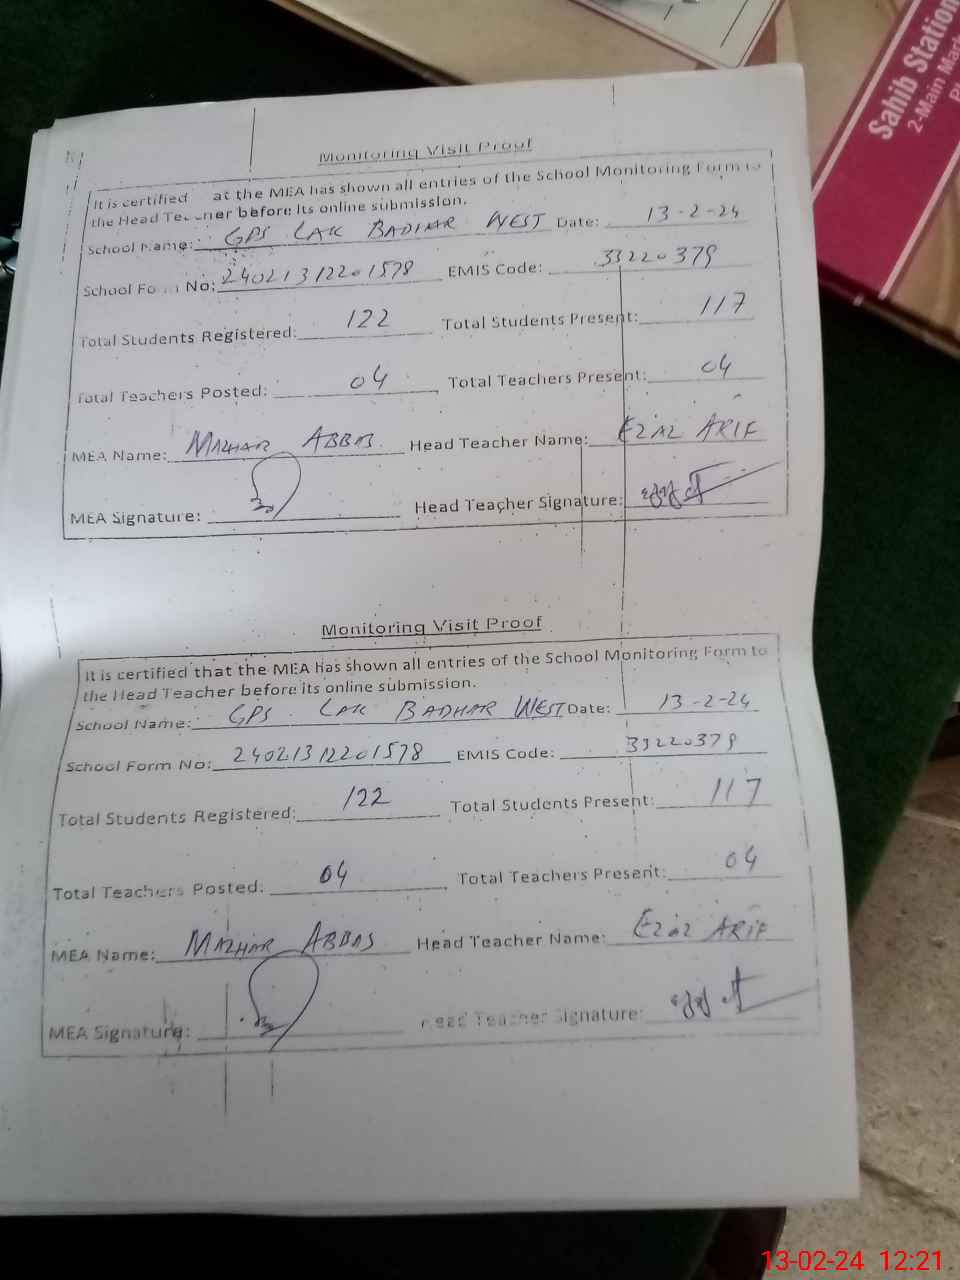 Sahib Station
2-Main Mar
Monitoring Visit Proof
It is certified at the MEA has shown all entries of the School Monitoring Form to
the Head Teacher before its online submission.
School Name: GPS LAK BADHAR WEST Date: 13-2-24
School Form No: 24021312201578 EMIS Code: 33220379
Total Students Registered: 122 Total Students Present: 117
Total Teachers Posted: 04 Total Teachers Present: 04
MEA Name: MAZHAR ABBAS Head Teacher Name: EZAZ ARIF
MEA Signature: Head Teacher Signature:
Monitoring Visit Proof
It is certified that the MEA has shown all entries of the School Monitoring Form to
the Head Teacher before its online submission.
School Name: GPS LAK BADHAR WEST Date: 13-2-24
School Form No: 24021312201578 EMIS Code: 33220379
Total Students Registered: 122 Total Students Present: 117
Total Teachers Posted: 04 Total Teachers Present: 04
MEA Name: MAZHAR ABBAS Head Teacher Name: EZAZ ARIF
MEA Signature: Head Teacher Signature:
13-02-24 12:21